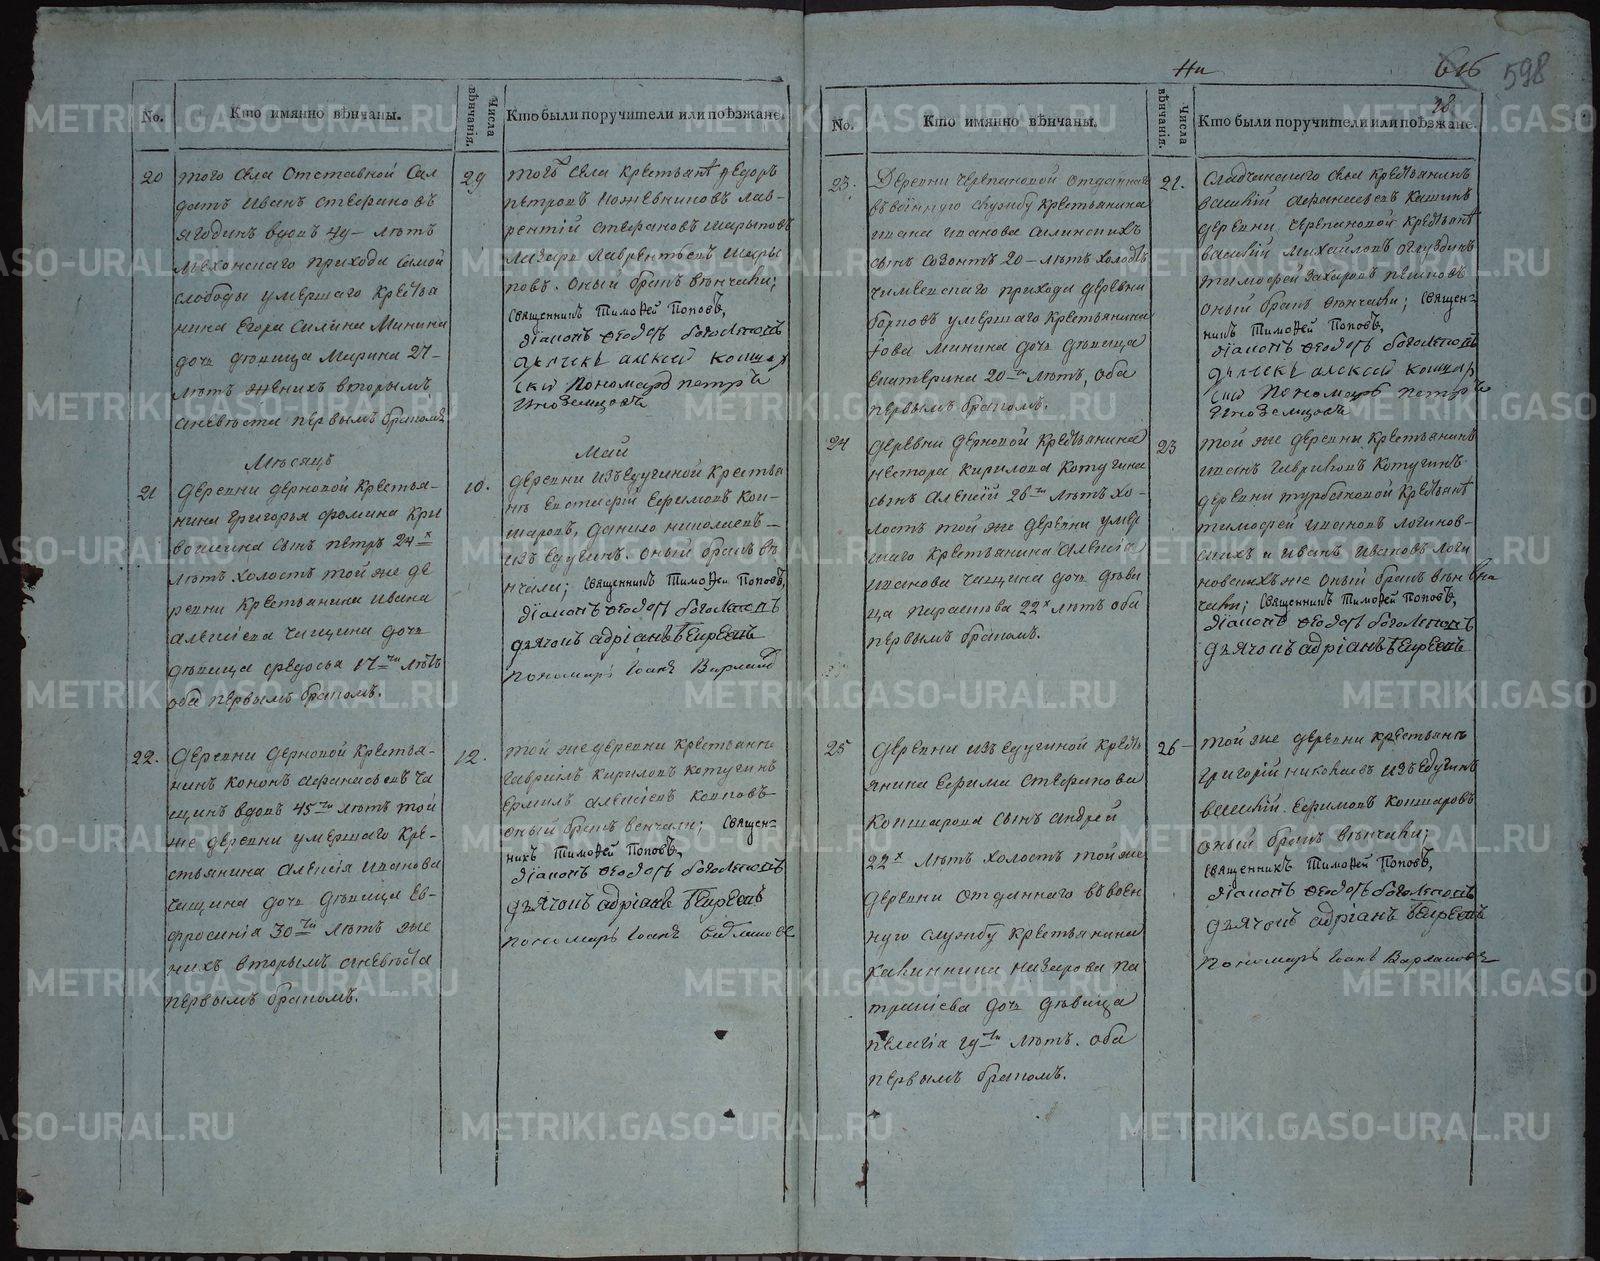 Ни
616
598
18.
No.
Кто имянно вѣнчаны.
Числа вѣнчанія.
Кто были поручители или поѣзжане.
20
того села отставной Сал
датъ Иванъ Стефановъ
Ягодинъ вдовъ 49 лѣтъ
Мехонскаго прихода самой
слободы умершаго крестья
нина Егора Силина Минина
дочь дѣвица Марина 27
лѣтъ женихъ вторымъ
а невѣста первымъ бракомъ
29
тогожъ села крестьяне Ѳедоръ
Петровъ Ножевниковъ Лав-
рентій Стефановъ Шарыповъ
Лазарь Лаврентьевъ Шары
повъ. Оный бракъ вѣнчали;
священникъ Тимоѳей Поповъ,
діаконъ Ѳеодоръ Боголѣповъ
Алексѣй
Пономарь Петръ
Иноземцовъ
Мѣсяцъ
Май
21
Деревни Дерновой крестья-
нина Григорья Фомина Кри
вошеина сынъ Петръ 24х
лѣтъ холостъ той же де
ревни крестьянина Ивана
Алексіева Чащина дочь
дѣвица Федосья 17ти лѣтъ
оба первымъ бракомъ.
10.
деревни Изъедугиной крестья
не Евстафій Ефимовъ Кок-
шаровъ, Данило Николаевъ
Изъедугинъ. Оный бракъ вѣ
нчали; священникъ Тимоѳей Поповъ,
діаконъ Ѳеодоръ Боголѣповъ
дьячокъ Адріанъ
пономарь Іоанъ
22.
Деревни Дерновой крестья-
нинъ Кононъ Афанасьевъ Ча
щинъ вдовъ 45ти лѣтъ той
же деревни умершаго кре-
стьянина Алексія Иванова
Чащина дочь дѣвица Ев-
фросинія 30ти лѣтъ же
нихъ вторымъ а невѣста
первымъ бракомъ.
12.
той же деревни крестьяне
Гавріилъ Кириловъ Котугинъ
Ермилъ Алексіевъ
оный бракъ венчали; священ-
никъ Тимоѳей Поповъ,
діаконъ Ѳеодоръ Боголѣповъ
дьячокъ Адріанъ
пономарь Іоанъ
No.
Кто имянно вѣнчаны.
Числа вѣнчанія.
Кто были поручители или поѣзжане.
23.
Деревни Черепановой отданнаго
въ военную службу крестьянина
Ивана Иванова
сынъ Созонтъ 20 лѣтъ холостъ
прихода деревни
умершаго крестьянина
Іова Минина дочь дѣвица
Екатерина 20ти лѣтъ, оба
первымъ бракомъ.
21.
села крестьянинъ
Василій Афанасьевъ
деревни Черепановой крестьяне
Василій Михайловъ
Тимофей Захаровъ
оный бракъ вѣнчали; священ-
никъ Тимоѳей Поповъ,
діаконъ Ѳеодоръ Боголѣповъ
Алексѣй
Пономарь Петръ
Иноземцовъ
24
деревни Дерновой крестьянина
Нестора Кирилова Котугина
сынъ Алексій 26ти лѣтъ хо-
лостъ той же деревни умер
шаго крестьянина Алексія
Иванова Чащина дочь дѣви
ца Параскева 22х лѣтъ оба
первымъ бракомъ.
23
той же деревни крестьянинъ
Иванъ Гавриловъ Котугинъ
деревни Турбановой крестьяне
Тимофей Ивановъ Логинов-
скихъ и Иванъ Ивановъ Логи
новскихъ же оный бракъ вѣн
чали; священникъ Тимоѳей Поповъ,
діаконъ Ѳеодоръ Боголѣповъ
дьячокъ Адріанъ
25
Деревни Изъедугиной кресть
янина Ефима Стефанова
Кокшарова сынъ Андрей
22х лѣтъ холостъ той же
деревни отданнаго въ воен
ную службу крестьянина
Калинника Назарова Па
дочь дѣвица
Пелагія 19ти лѣтъ. оба
первымъ бракомъ.
26
той же деревни крестьяне
Григорій Николаевъ Изъедугинъ
Василій Ефимовъ Кокшаровъ
оный бракъ вѣнчали;
священникъ Тимоѳей Поповъ,
діаконъ Ѳеодоръ Боголѣповъ
дьячокъ Адріанъ
пономарь Іоанъ Варлаковъ
METRIKI.GASO-URAL.RU